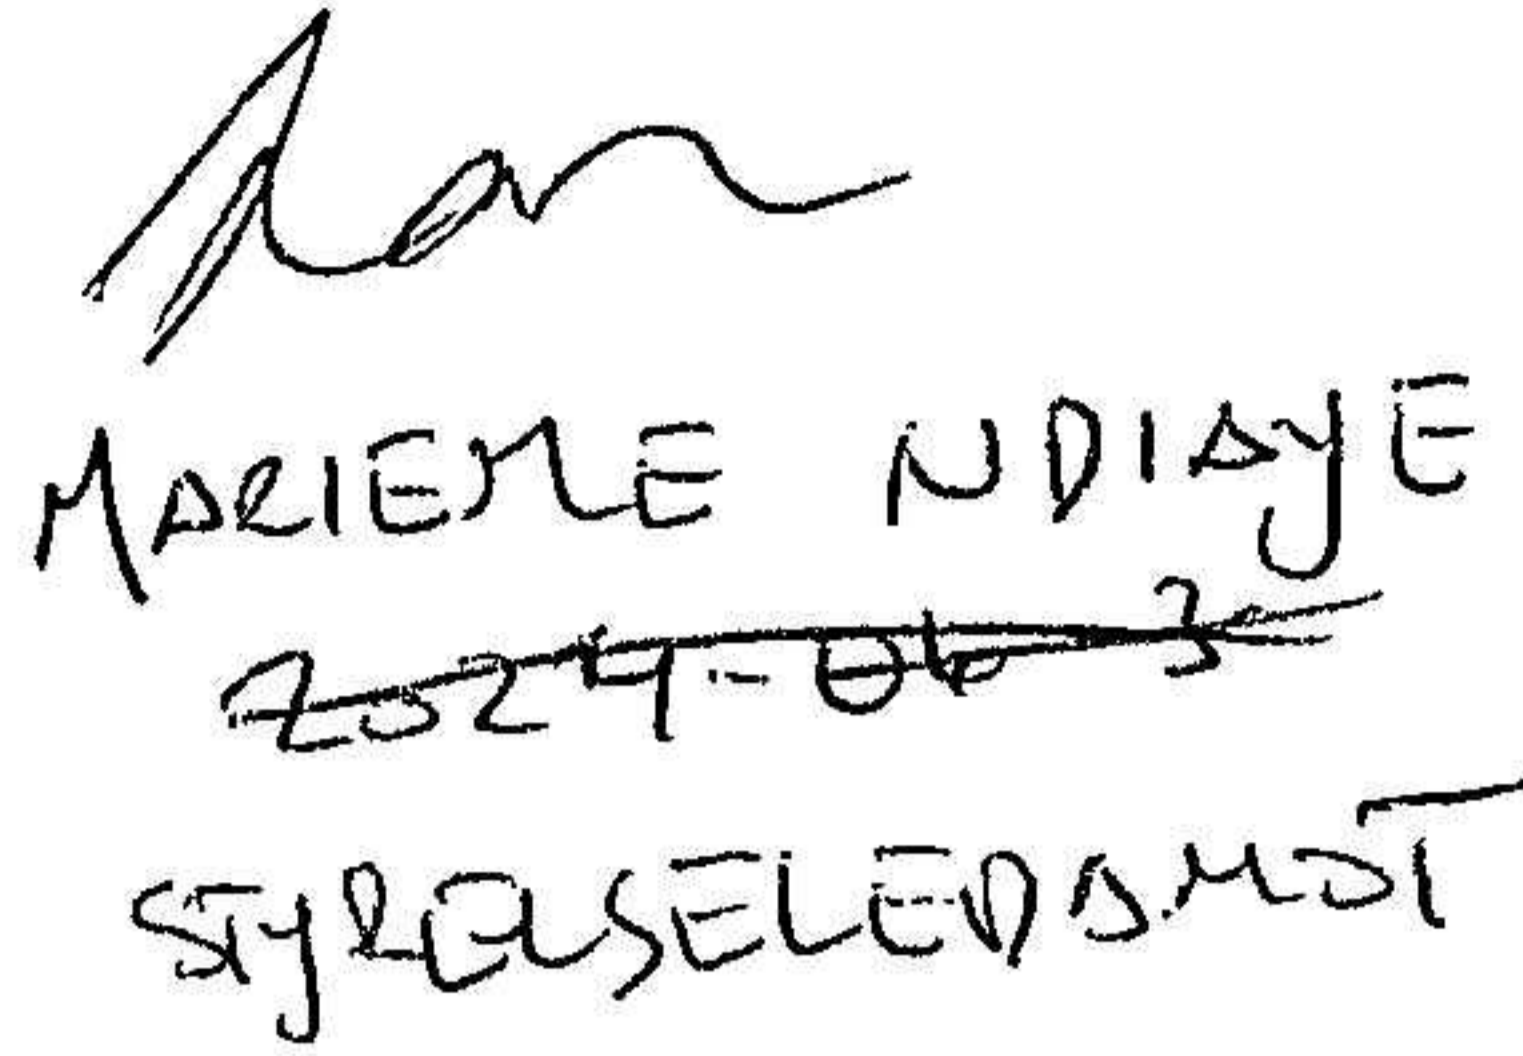 MARIEME NDIAYE
2024-06 3
STYRELSELEDAMOT